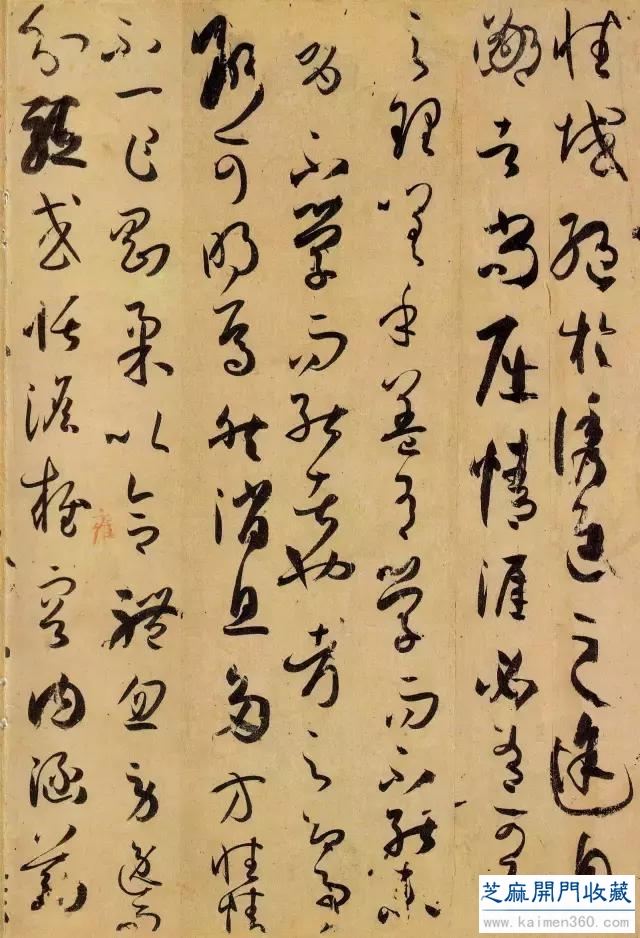 性域絕於誘進之途自
鄙者尚屈情涯必有可
之理嗟乎蓋有學而不能未
有不學而能者也考之即事
斷可明焉然消息多方性情
不一乍剛柔以合體忽勞逸而
分驅或恬憺雍容内涵筋
芝麻開門收藏
www.kaimen360.com